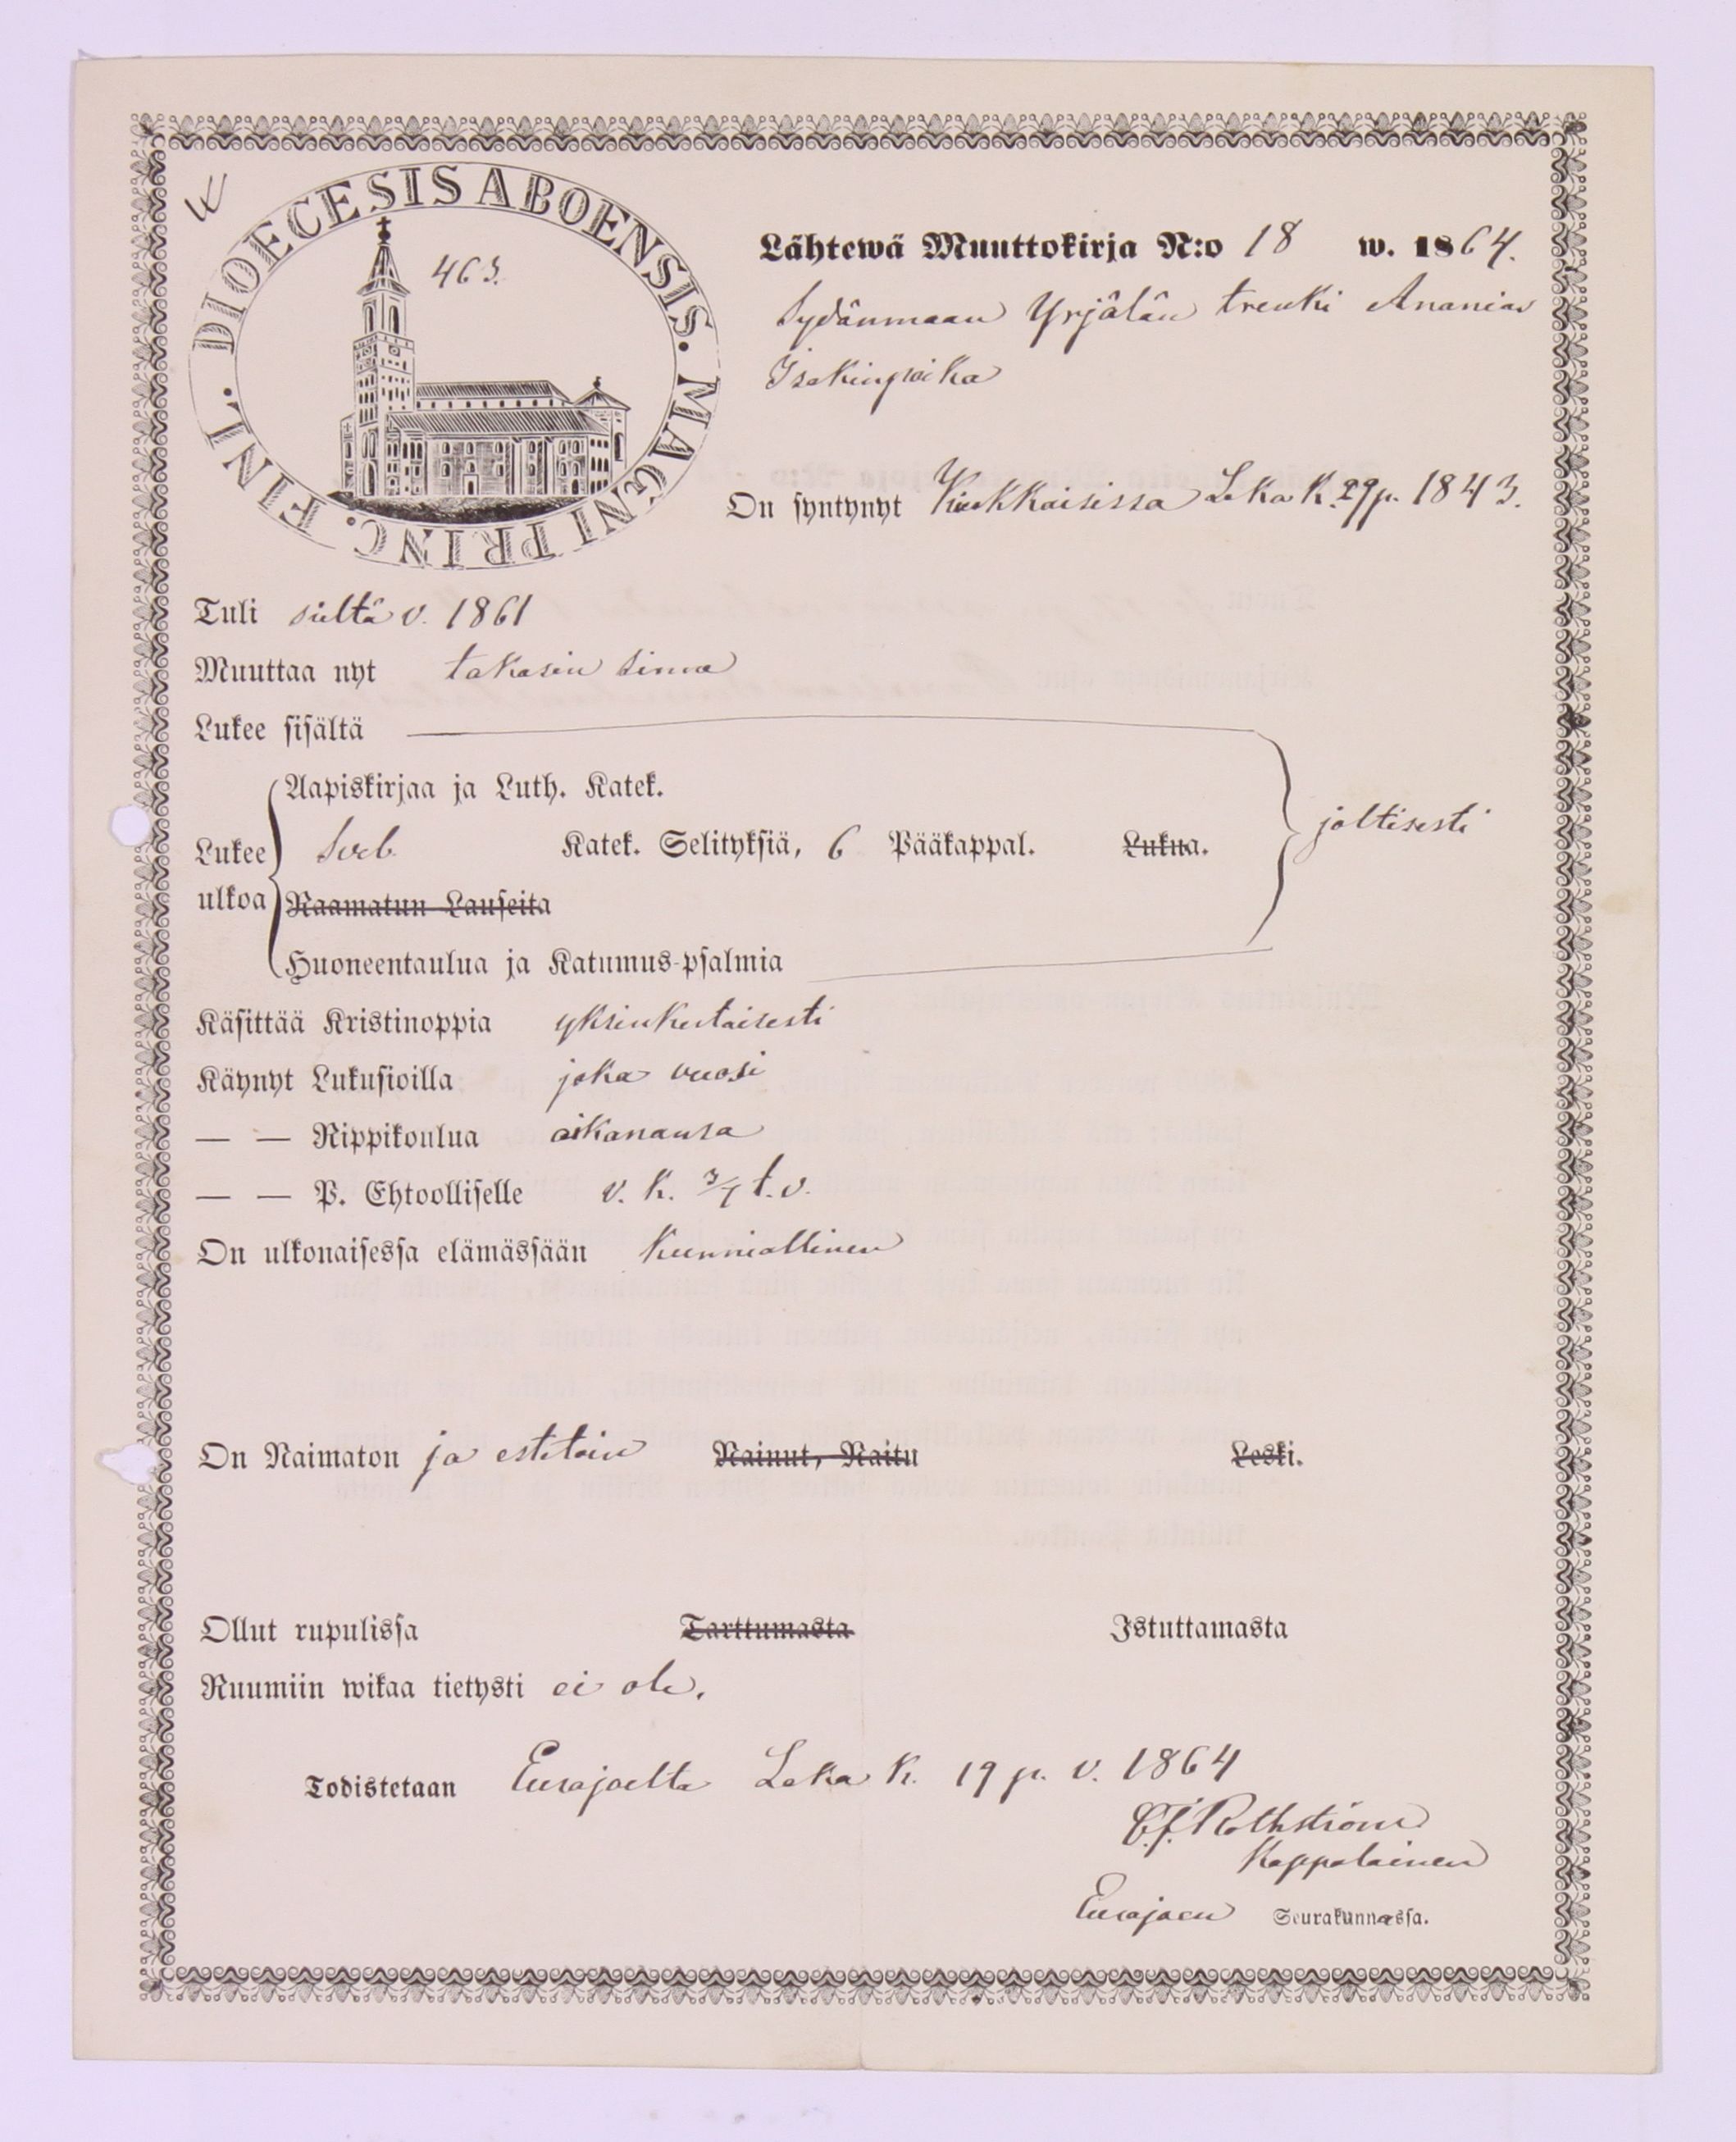 DIOECESIS ABOENSIS. MAGNI PRINC. FINL.
463.
Lähtewä Muuttokirja N:o 18 w. 1864.
Sydänmaan Yrjälän trenki Ananias
Isakinpoika
On syntynyt Kiukkaisissa Loka K. 29 p. 1843.
Tuli sieltä v. 1861
Muuttaa nyt takasin sinne
Lukee sisältä
Aapiskirjaa ja Luth. Katek.
Lukee ulkoa Sveb. Katek. Selityksiä, 6 Pääkappal. Lukua. joltisesti
Raamatun Lauseita
Huoneentaulua ja Katumus-psalmia
Käsittää Kristinoppia yksinkertaisesti
Käynyt Lukusioilla joka vuosi
— — Rippikoulua aikanansa
— — P. Ehtoolliselle v. k. 3/7 t. v.
On ulkonaisessa elämässään kunniallinen
On Naimaton ja estetöin Nainut, Naitu Leski.
Ollut rupulissa Tarttumasta Istuttamasta
Ruumiin wikaa tietysti ei ole.
Todistetaan Eurajoelta Loka k. 19 p. v. 1864
Rothström
Kappalainen
Eurajoen Seurakunnassa.